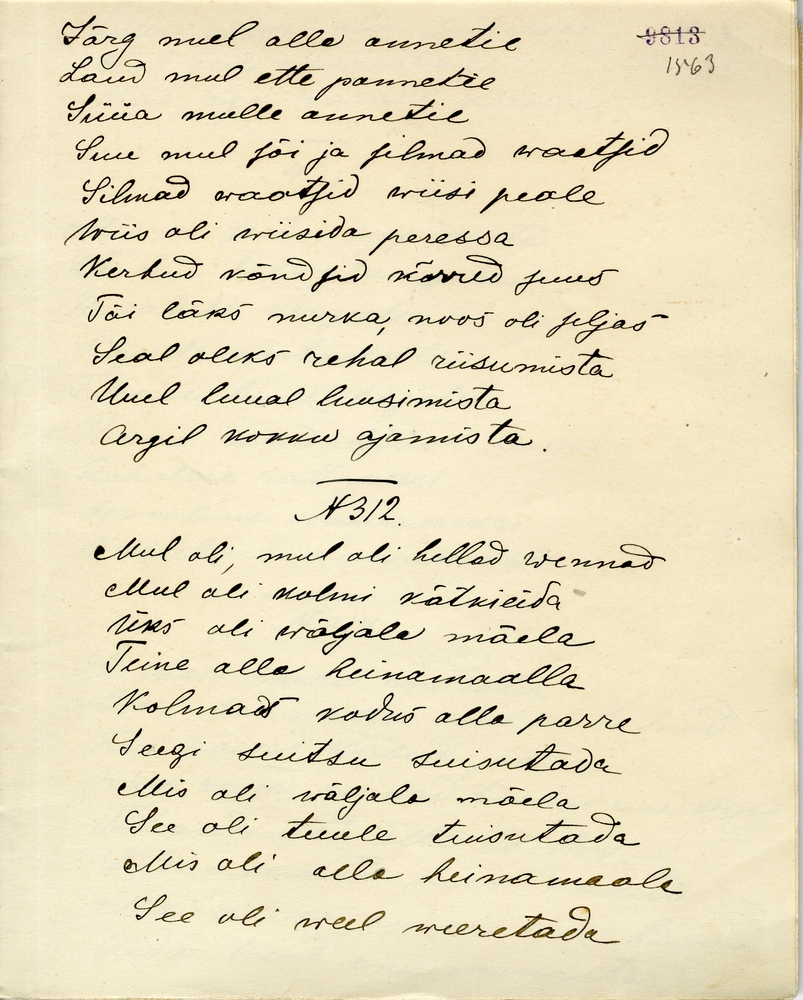 9813
1563
Järg mul alla annetie
Laud mul ette pannetie
Süüa mulle annetie
Suu mul sõi ja silmad waatsid
Silmad waatsid wiisi peale
Wiis oli wiisida peressa
Kerkud kõndsid kõrred suus
Töi läks nurka, noos oli seljas
Seal oleks rehal riisumista
Uuel luual luusimista
Argil kokku ajamista.
N 312.
Mul oli, mul oli hellad wennad
Mul oli kolmi kätkieida
Üks oli wäljala mäela
Teine alla heinamaalla
Kolmas kodus alla parre
Seegi suitsu suisutada
Mis oli wäljala mäela
See oli tuule tuisutada
Mis oli alla heinamaala
See oli weel weeretada